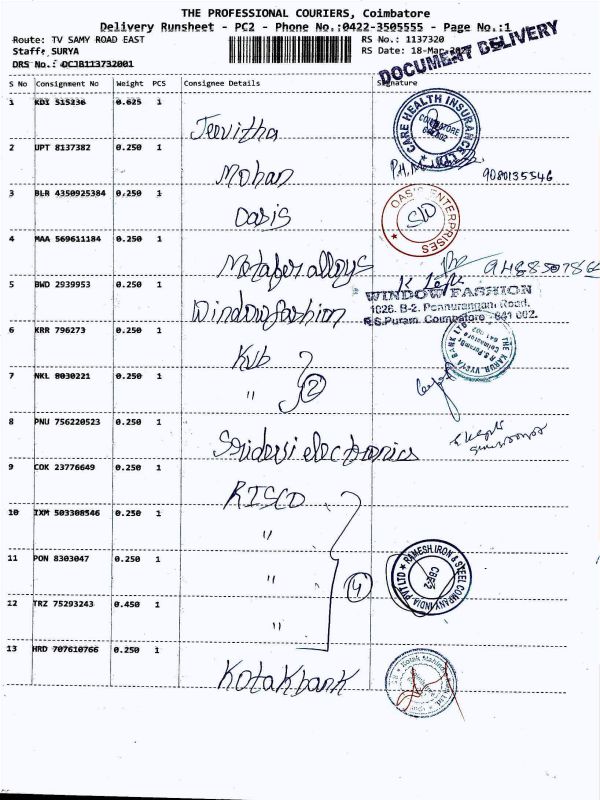 THE PROFESSIONAL COURIERS, Coimbatore
Delivery Runsheet - PC2 - Phone No.:0422-3505555 - Page No.:1
Route: TV SAMY ROAD EAST
RS No.: 1137320
Staff: SURYA
RS Date: 18-Mar
DRS No.: DCJB113732001
DOCUMENT DELIVERY
S No Consignment No Weight PCS Consignee Details Signature
1 KDI 515236 0.625 1 Jeevitha
CARE HEALTH INSURANCE LTD
COIMBATORE
2 UPT 8137382 0.250 1 Mohan 9080135546
3 BLR 4350925384 0.250 1 Oasis
OASIS ENTERPRISES
4 MAA 569611184 0.250 1 Metafer alloys
5 BWD 2939953 0.250 1 Window fashion
WINDOW FASHION
1026. B-2. Ponnurangam Road,
R.S.Puram, Coimbatore - 641 002.
6 KRR 796273 0.250 1 KVB
THE KARUR VYSYA BANK LTD
7 NKL 8030221 0.250 1 " 2
8 PNU 756220523 0.250 1 Sridevi electronics
9 COK 23776649 0.250 1 RISCO
10 IXM 503308546 0.250 1 "
11 PON 8303047 0.250 1 " 4
RAMESH IRON & STEEL COMPANY INDIA PVT LTD
CBE-2
12 TRZ 75293243 0.450 1 "
13 HRD 707610766 0.250 1 Kotak bank